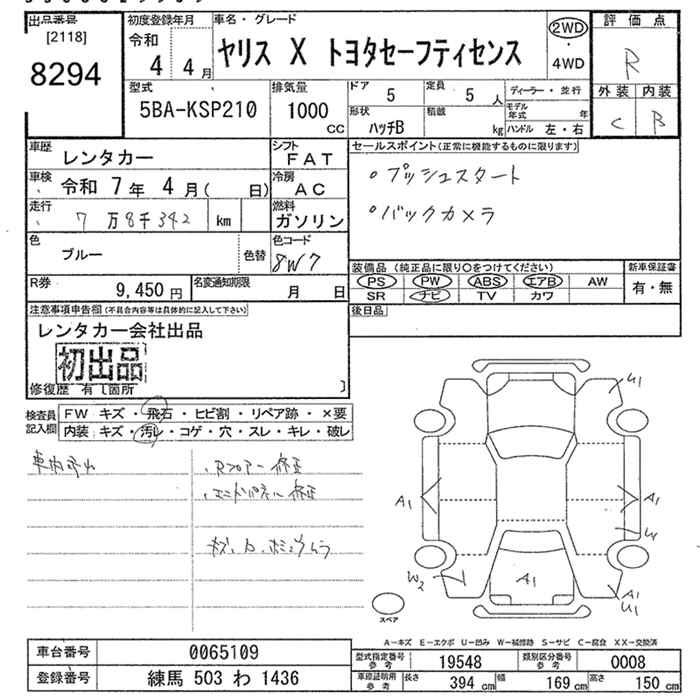 出品番号
[2118]
8294
初度登録年月
令和
4 4月
車名・グレード
ヤリス X トヨタセーフティセンス
2WD
・
4WD
評価点
R
外装 内装
C B
型式
5BA-KSP210
排気量
1000
CC
ドア 5
定員 5 人
ディーラー・並行
形状
ハッチB
積載 kg
モデル年式 年
ハンドル 左・右
車歴
レンタカー
シフト
FAT
セールスポイント(正常に機能するものに限ります)
・プッシュスタート
・バックカメラ
車検 令和 7年 4月( 日)
冷房
AC
走行 7万8千342 km
燃料
ガソリン
色
ブルー
色替
色コード
8W7
装備品(純正品に限り○をつけてください)
PS PW ABS エアB AW
SR ナビ TV カワ
新車保証書
有・無
R券
9,450円
名変通知期限
月 日
後日品
注意事項申告欄(不具合内容等は具体的に記入して下さい)
レンタカー会社出品
初出品
修復歴 有〔箇所 〕
検査員記入欄
FW キズ・飛石・ヒビ割・リペア跡・×要
内装 キズ・汚レ・コゲ・穴・スレ・キレ・破レ
・Rフロアー修正
・エンドパネル修正
U1
A1
A1
W2
A1
A1
U1
スペア
A-キズ E-エクボ U-凹み W-補修跡 S-サビ C-腐食 XX-交換済
車台番号 0065109
登録番号 練馬 503 わ 1436
型式指定番号参考 19548
類別区分番号参考 0008
車庫証明用参考 長さ 394 cm 幅 169 cm 高さ 150 cm